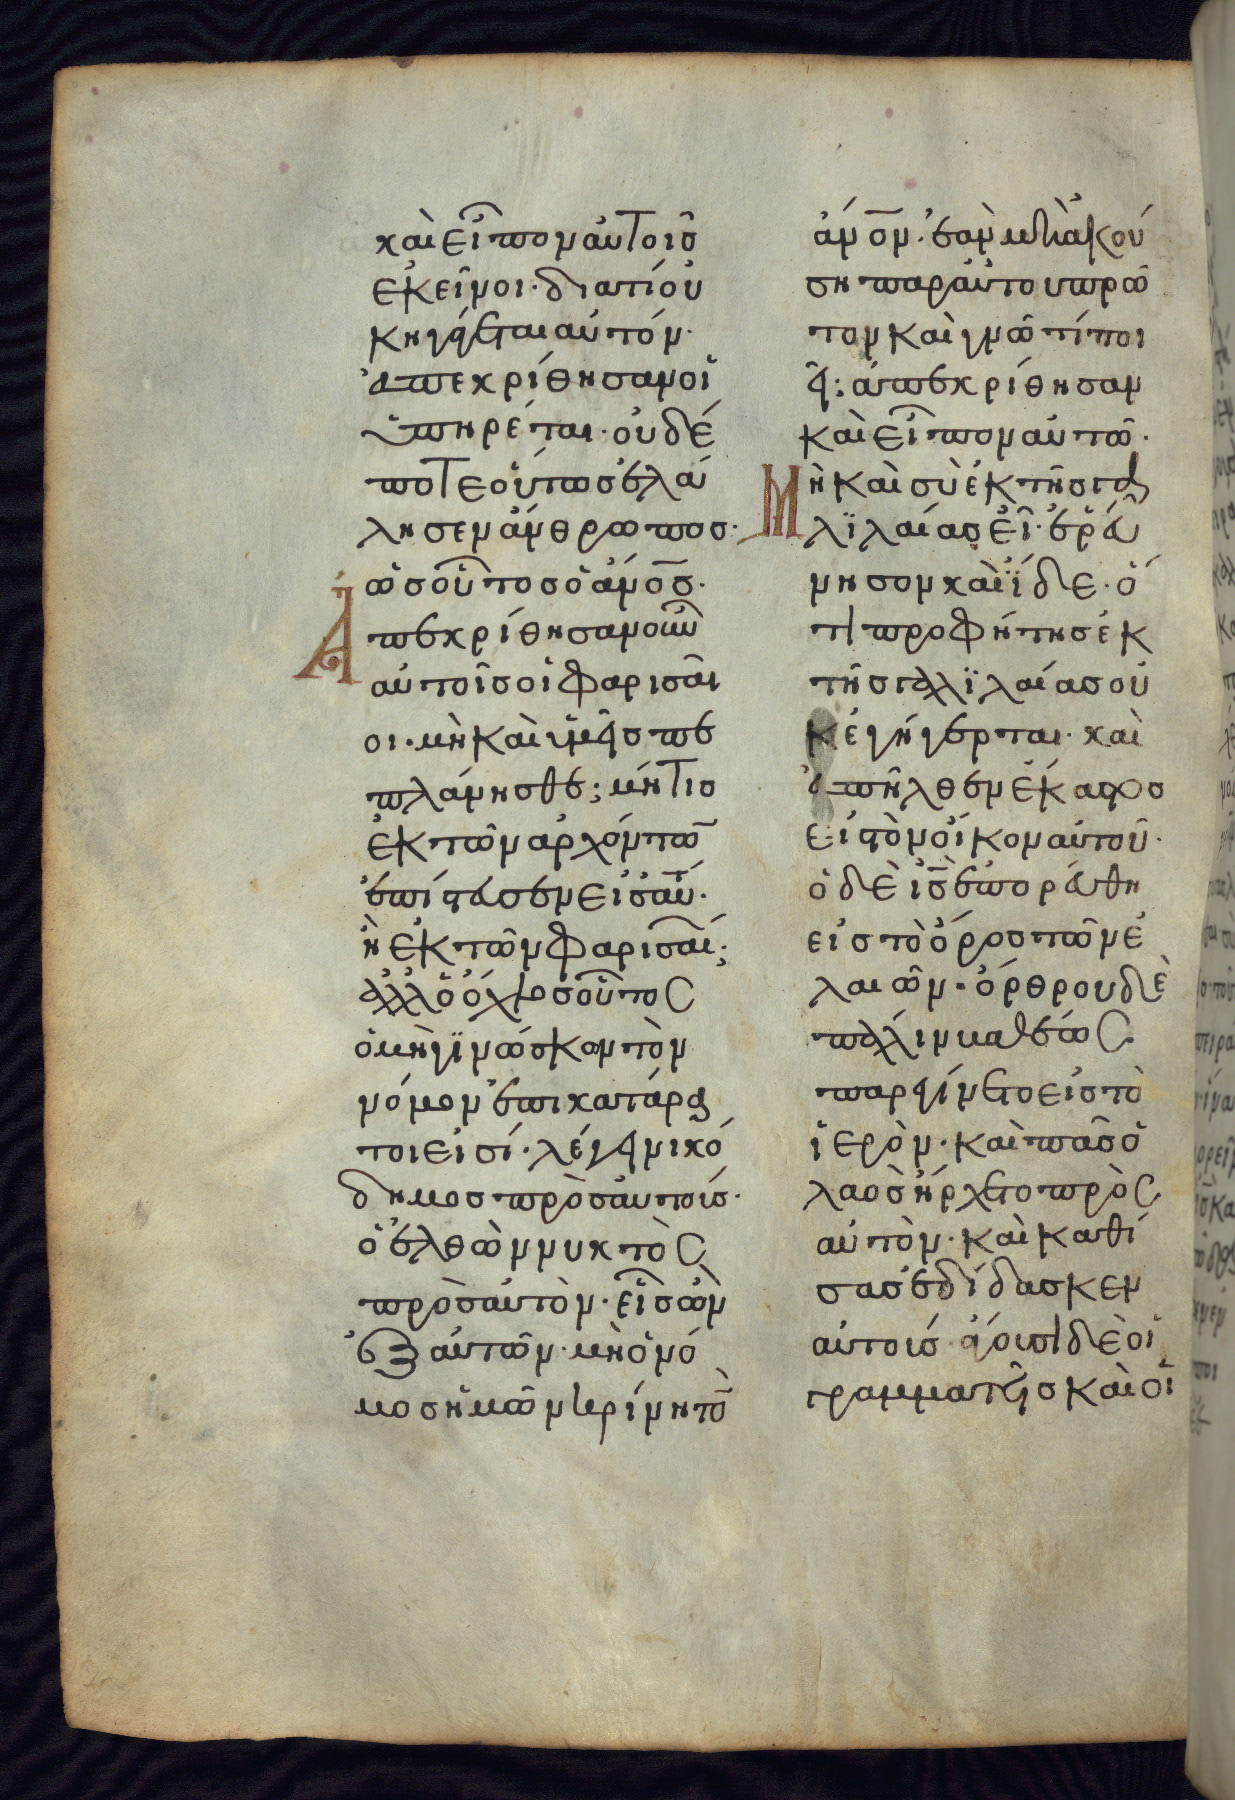 καὶ εἶπον αὐτοῖς
ἐκεῖνοι· διατί οὐ
κ ἠγάγεται αὐτόν·
ἀπεκρίθησαν οἱ
ὑπηρέται· οὐδέ
ποτε οὕτως ἐλά
λησεν ἄνθρωπος·
ὡς οὗτος ὁ ἄνος·
Ἀ
πεκρίθησαν οὖν
αὐτοῖς οἱ φαρισαῖ
οι· μὴ καὶ ὑμεῖς πε
πλάνησθε; μήτις
ἐκ τῶν ἀρχόντω
ἐπίστευσεν εἰς αὐ·
ἢ ἐκ τῶν φαρισαί;
ἀλλ' ὁ ὄχλος οὗτος
ὁ μὴ γινώσκων τὸν
νόμον ἐπικατάρα
τοι εἰσί· λέγει νικό
δημος πρὸς αὐτούς·
ὁ ἐλθὼν νυκτὸς
πρὸς αὐτὸν· εἷς ὢν
ἐξ αὐτῶν· μὴ ὁ νό
μος ἡμῶν κρίνη τὸ
ἄνον· ἐὰν μὴ ἀκού
ση παρ' αὐτου πρῶ
τον καὶ γνῶ τί ποι
εῖ; ἀπεκρίθησαν
καὶ εἶπον αὐτῶ·
Μὴ καὶ σὺ ἐκ τῆς γα
λιλαίας εἶ· ἐρεύ
νησον καὶ ἴδε· ὅ
τι προφήτης ἐκ
τῆς γαλιλαίας οὐ
κ ἐγήγερται· καὶ
ἀπῆλθεν ἕκαστος
εἰς τὸν οἶκον αὐτοῦ·
ὁ δὲ ις ἐπορεύθη
εἰς τὸ ὄρος τῶν ἐ
λαιῶν· ὄρθρου δὲ
πάλιν βαθέως
παρεγένετο εἰς τὸ
ἱερὸν· καὶ πᾶς ὁ
λαὸς ἤρχετο πρὸς
αὐτὸν· καὶ καθί
σας ἐδίδασκεν
αὐτοὺς· ἄγουσι δὲ οἱ
γραμματεῖς καὶ οἱ